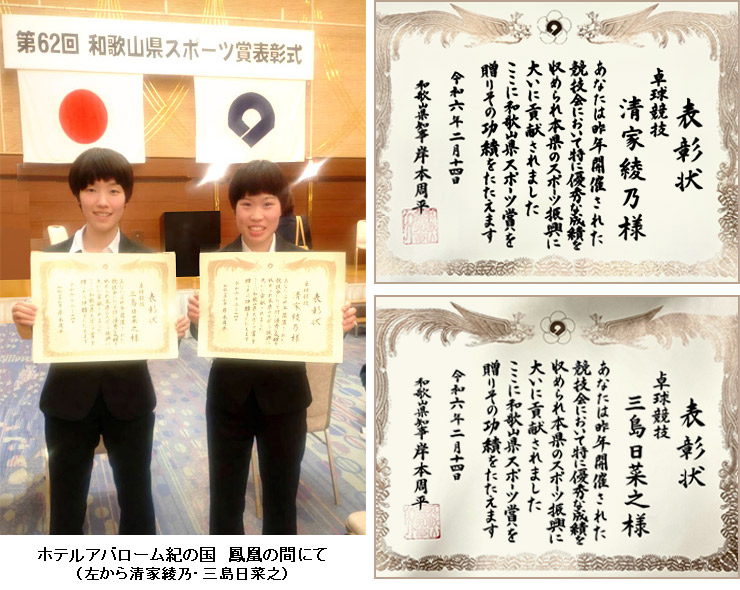 第62回 和歌山県スポーツ賞表彰式
表彰状
卓球競技
三島日菜之様
表彰状
卓球競技
清家綾乃様
ホテルアバローム紀の国 鳳凰の間にて
(左から清家綾乃・三島日菜之)
表彰状
卓球競技
清家綾乃様
あなたは昨年開催された
競技会において特に優秀な成績を
収められ本県のスポーツ振興に
大いに貢献されました
ここに和歌山県スポーツ賞を
贈りその功績をたたえます
令和六年二月十四日
和歌山県知事 岸本周平
表彰状
卓球競技
三島日菜之様
あなたは昨年開催された
競技会において特に優秀な成績を
収められ本県のスポーツ振興に
大いに貢献されました
ここに和歌山県スポーツ賞を
贈りその功績をたたえます
令和六年二月十四日
和歌山県知事 岸本周平